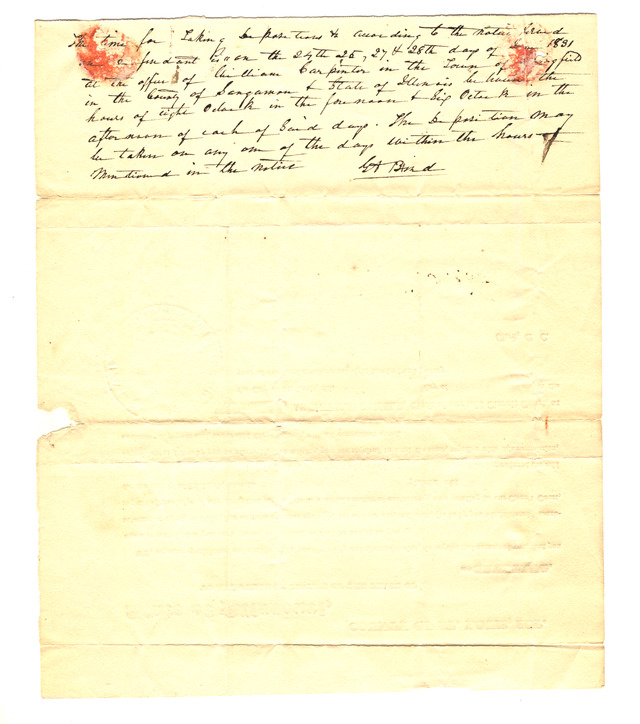 The time for Taking Depositions &c according to the notice served
on defendant is on the 24th 25, 27 & 28th day of June 1831
at the office of William Carpinter in the Town of Springfield
in the County of Sangamon & State of Illinois between the
hours of eight Oclock in the forenoon & Six Oclock in the
afternoon of each of Said days. The Deposition may
be taken on any one of the days within the hours
Mentioned in the notice